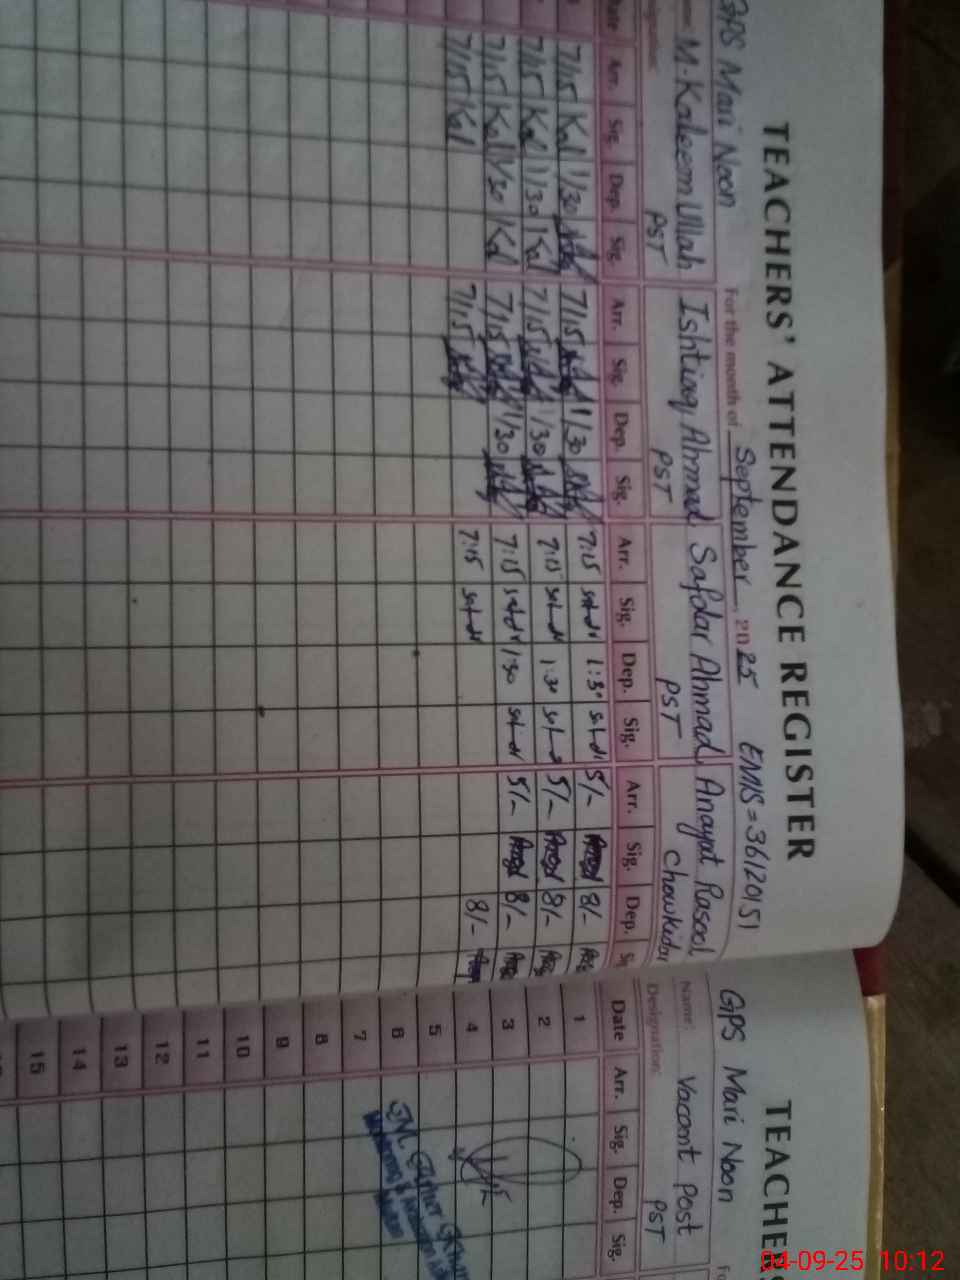 TEACHERS' ATTENDANCE REGISTER
GPS Mari Noon For the month of September, 2025 EMIS = 36120151
M. Kaleem Ullah Ishtiaq Ahmad Safdar Ahmad Anayat Rasool
PST PST PST Chowkidar
Date Arr. Sig. Dep. Sig. Arr. Sig. Dep. Sig. Arr. Sig. Dep. Sig. Arr. Sig. Dep.
7/15 Kal 1/30 7/15 1/30 7:15 1:30 5/- 8/-
7/15 Kal 1/30 Kal 7/15 1/30 7:15 1:30 5/- 8/-
7/15 Kal 1/30 Kal 7/15 1/30 7:15 1:30 5/- 8/-
7/15 Kal 7/15 7:15 8/-
TEACHERS
GPS Mari Noon
Name: Vacant Post
Designation: PST
Date Arr. Sig. Dep. Sig.
1
2
3
4
5
6
7
8
9
10
11
12
13
14
15
04-09-25 10:12